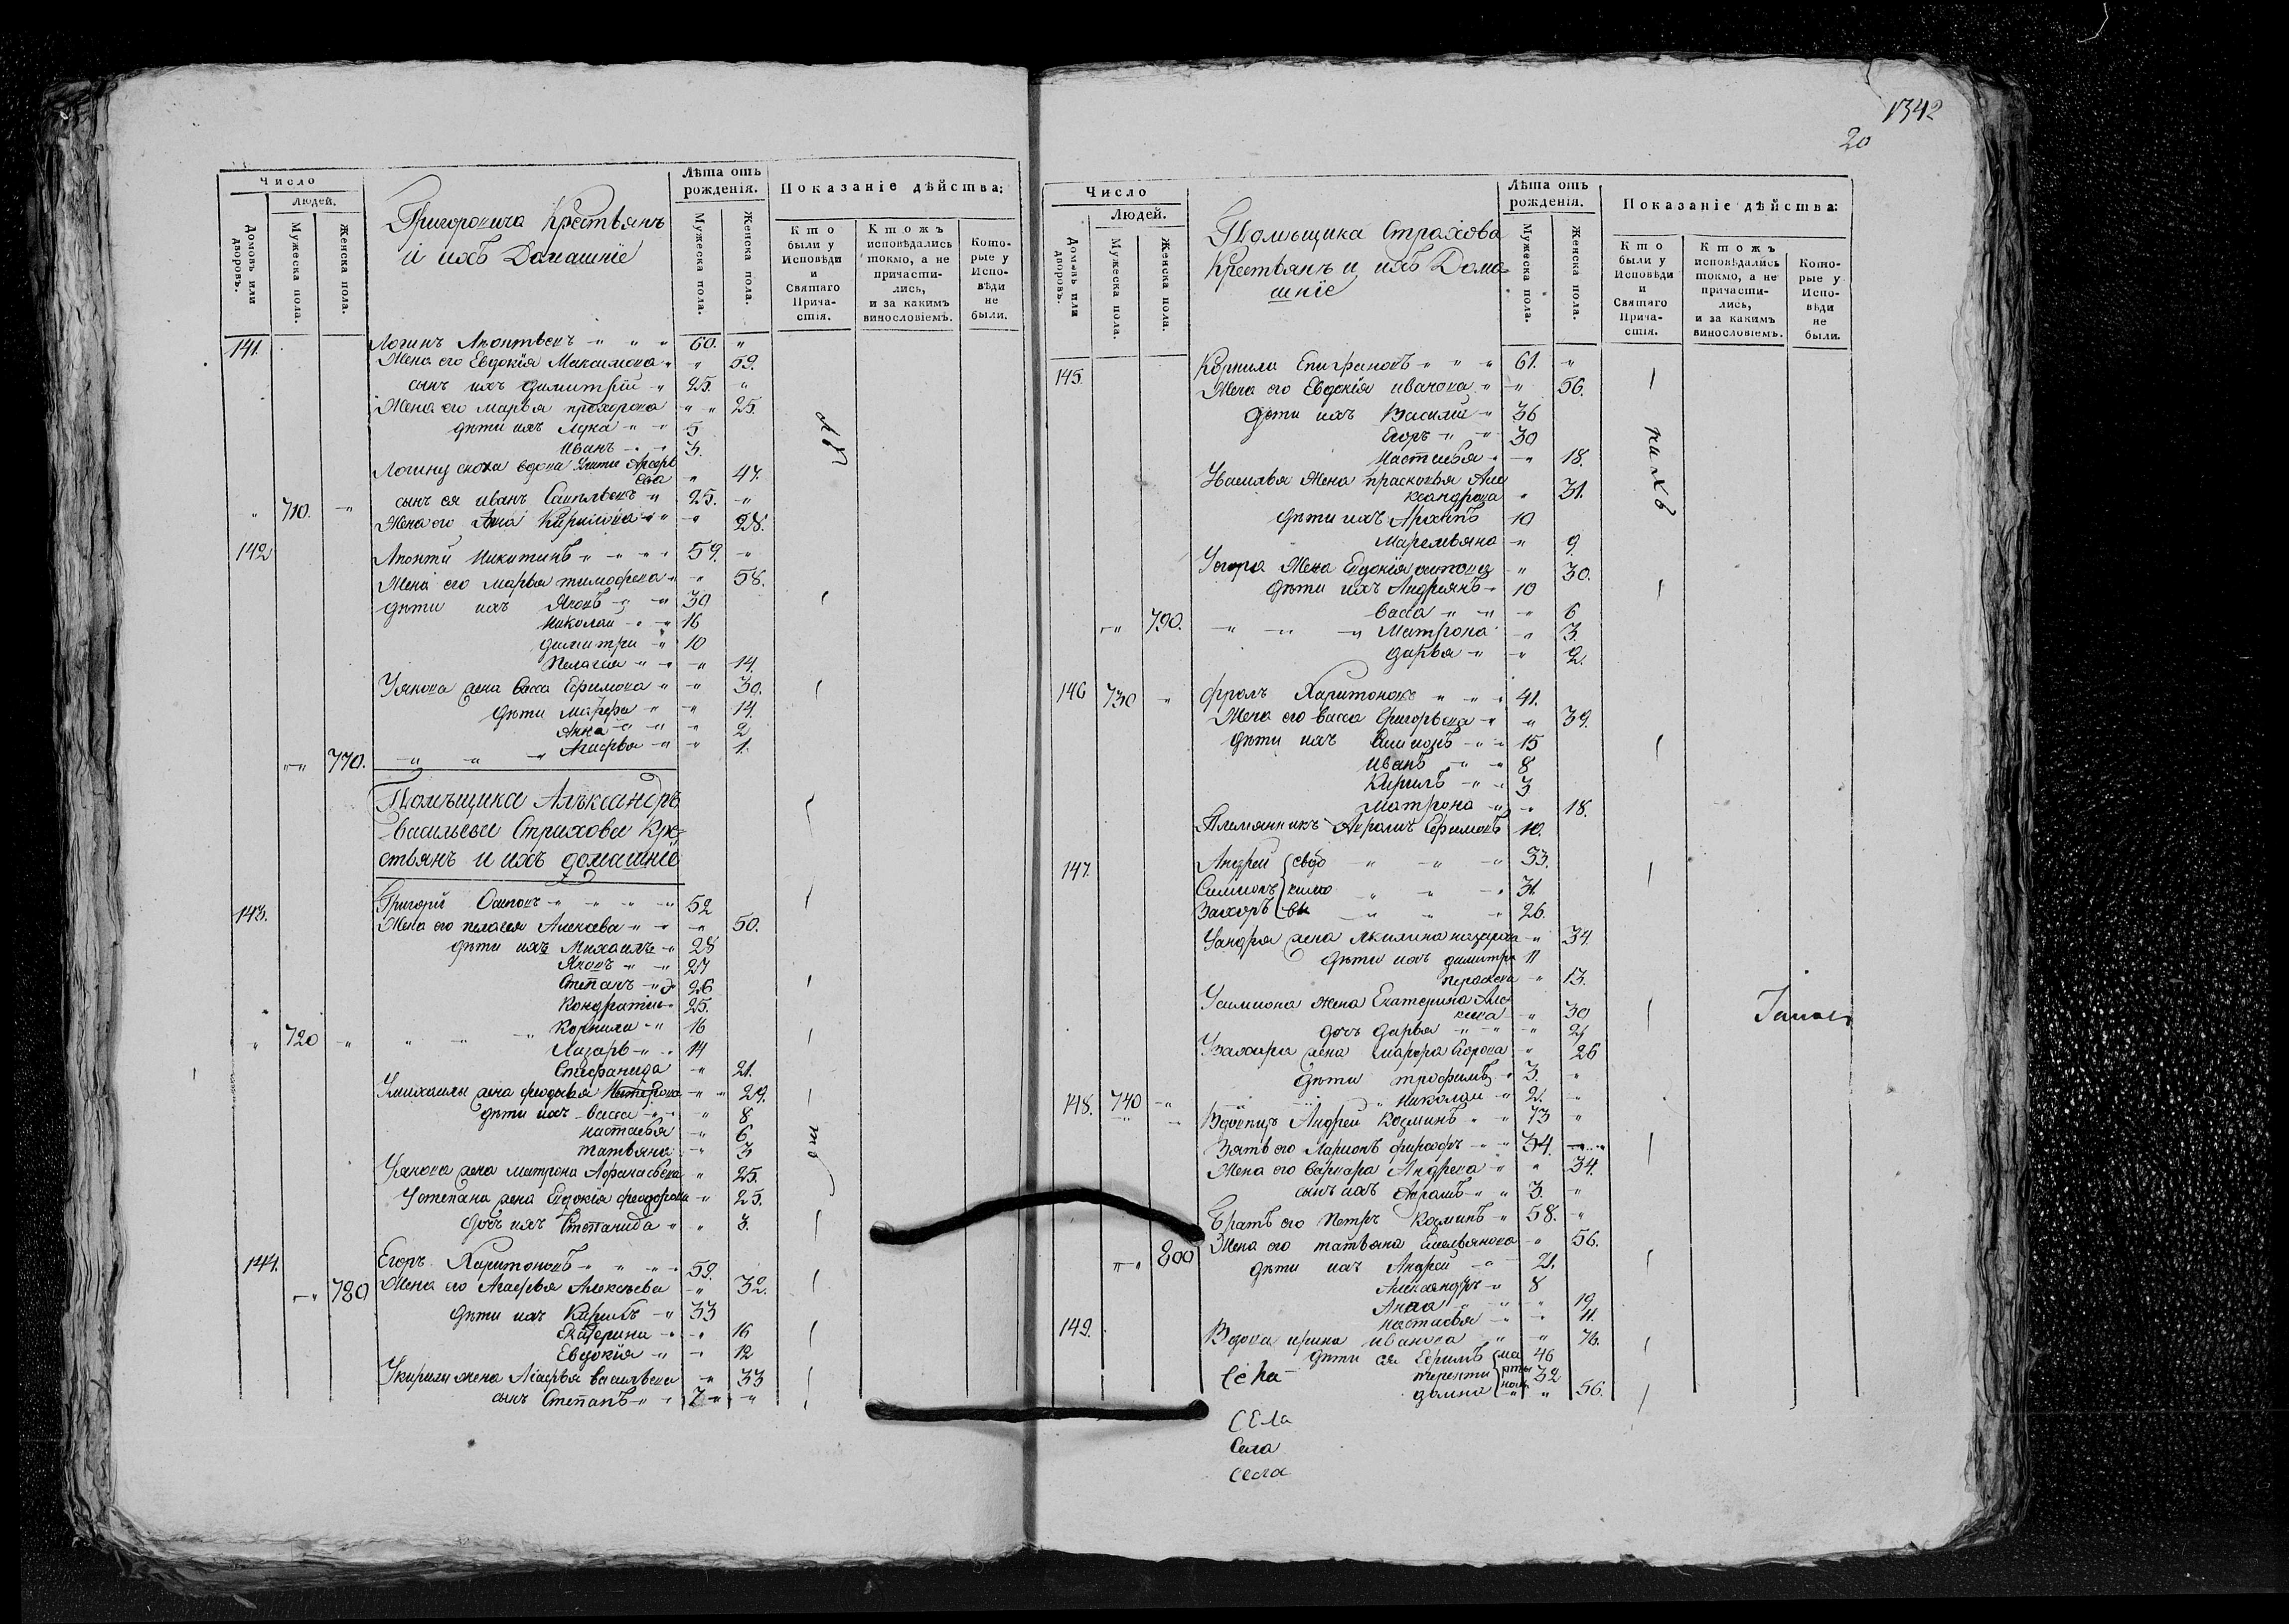 1342
20
Число
Людей.
Домовъ или дворовъ.
Мужеска пола.
Женска пола.
Григоровича Крестьянъ
и ихъ Домашніе
Лѣта отъ рожденія.
Мужеска пола.
Женска пола.
Показаніе дѣйства:
Кто были у Исповѣди и Святаго Причастія.
Ктожъ исповѣдались токмо, а не причастились, и за какимъ винословіемъ.
Которые у Исповѣди не были.
141. Логинъ Леонтьевъ 60.
Жена его Евдокія Максимова 59.
сынъ ихъ Димитрій 25.
Жена его марья прохорова 25.
дѣти ихъ Лука 5
Иванъ 3.
Логину сноха вдова 47.
710. сынъ ея иванъ Савельевъ 25.
Жена его Анна Кирилова 28.
142 Леонтй Никитинъ 59.
Жена его марья тимофеева 58.
дѣти ихъ Яковъ 30
Николаи 16
димитри 10
Пелагея 14.
Уякова жена васса Ефимова 30.
дѣти Марфа 14.
Анна 2
770. Агафья 1.
Помѣщика Алѣксандръ
Васильева Страхова Кре-
стьянъ и ихъ домашніе
143. Григорй Осиповъ 52
Жена его пелагея Алексева 50.
дѣти ихъ Михаилъ 28
Яковъ 27
Степанъ 26
Кондратии 25.
720 Корнили 16
Лазарь 14
Стефанида 21.
Умихаилы жена федосья 29.
дѣти ихъ васса 8
настасья 6
татьяна 3
Уякова жена матрона Афанасьева 25.
Устепана жена Евдокія феодорова 25.
дочь ихъ Степанида 3.
144. Егоръ Харитоновъ 59.
780 Жена его Агафья Алексѣева 32.
дѣти ихъ Кирилъ 33
Екатерина 16
Евдокія 12
Укирилы жена Агафья васильева 33
сынъ Степанъ 7
Число
Людей.
Домовъ или дворовъ.
Мужеска пола.
Женска пола.
Помѣщика Страхова
Крестьянъ и ихъ Дома-
шніе
Лѣта отъ рожденія.
Мужеска пола.
Женска пола.
Показаніе дѣйства:
Кто были у Исповѣди и Святаго Причастія.
Ктожъ исповѣдались токмо, а не причастились, и за какимъ винословіемъ.
Которые у Исповѣди не были.
145. Корнила Епифановъ 61.
Жена его Евдокія иванова 56.
дѣти ихъ Василий 36
Егоръ 30
Настасья 18.
Увасилья Жена прасковья Але
ксандрова 31.
дѣти ихъ Архипъ 10
Маремьяна 9.
Уегора Жена Евдокія 30.
дѣти ихъ Андреянъ 10
васса 6
790. Матрона 3.
дарья 2.
146 730 фролъ Харитоновъ 41.
Жена его васса Григорьева 39.
дѣти ихъ Симионъ 15
Иванъ 8
Кирилъ 3
Матрона 18.
Племянникъ Авраамъ Ефимовъ 10.
147. Андрей 33.
Симионъ 31.
Захоръ 26.
Уандрея жена Акилина назарова 34
дѣти ихъ димитри 11
параскева 13.
Усимиона жена Екатерина Але
ксева 30
дочь дарья 2
Узахара жена марфа Егорова 26
дѣти трофимъ 3.
148. 740 Николаи 2.
Вдовецъ Андреи Козминъ 73
Зять его Ларионъ 34.
Жена его варвара Андреева 34.
сынъ ихъ Авраамъ 3.
Братъ его Петръ Козминъ 58.
800 Жена его татьяна Емельянова 56.
дѣти ихъ Андрей 21.
Александръ 8
Анна 19
настасья 11.
149. Вдова ирина иванова 76.
дѣти ея Ефимъ 46
терентй 32
домна 56.
Села
Села
Села